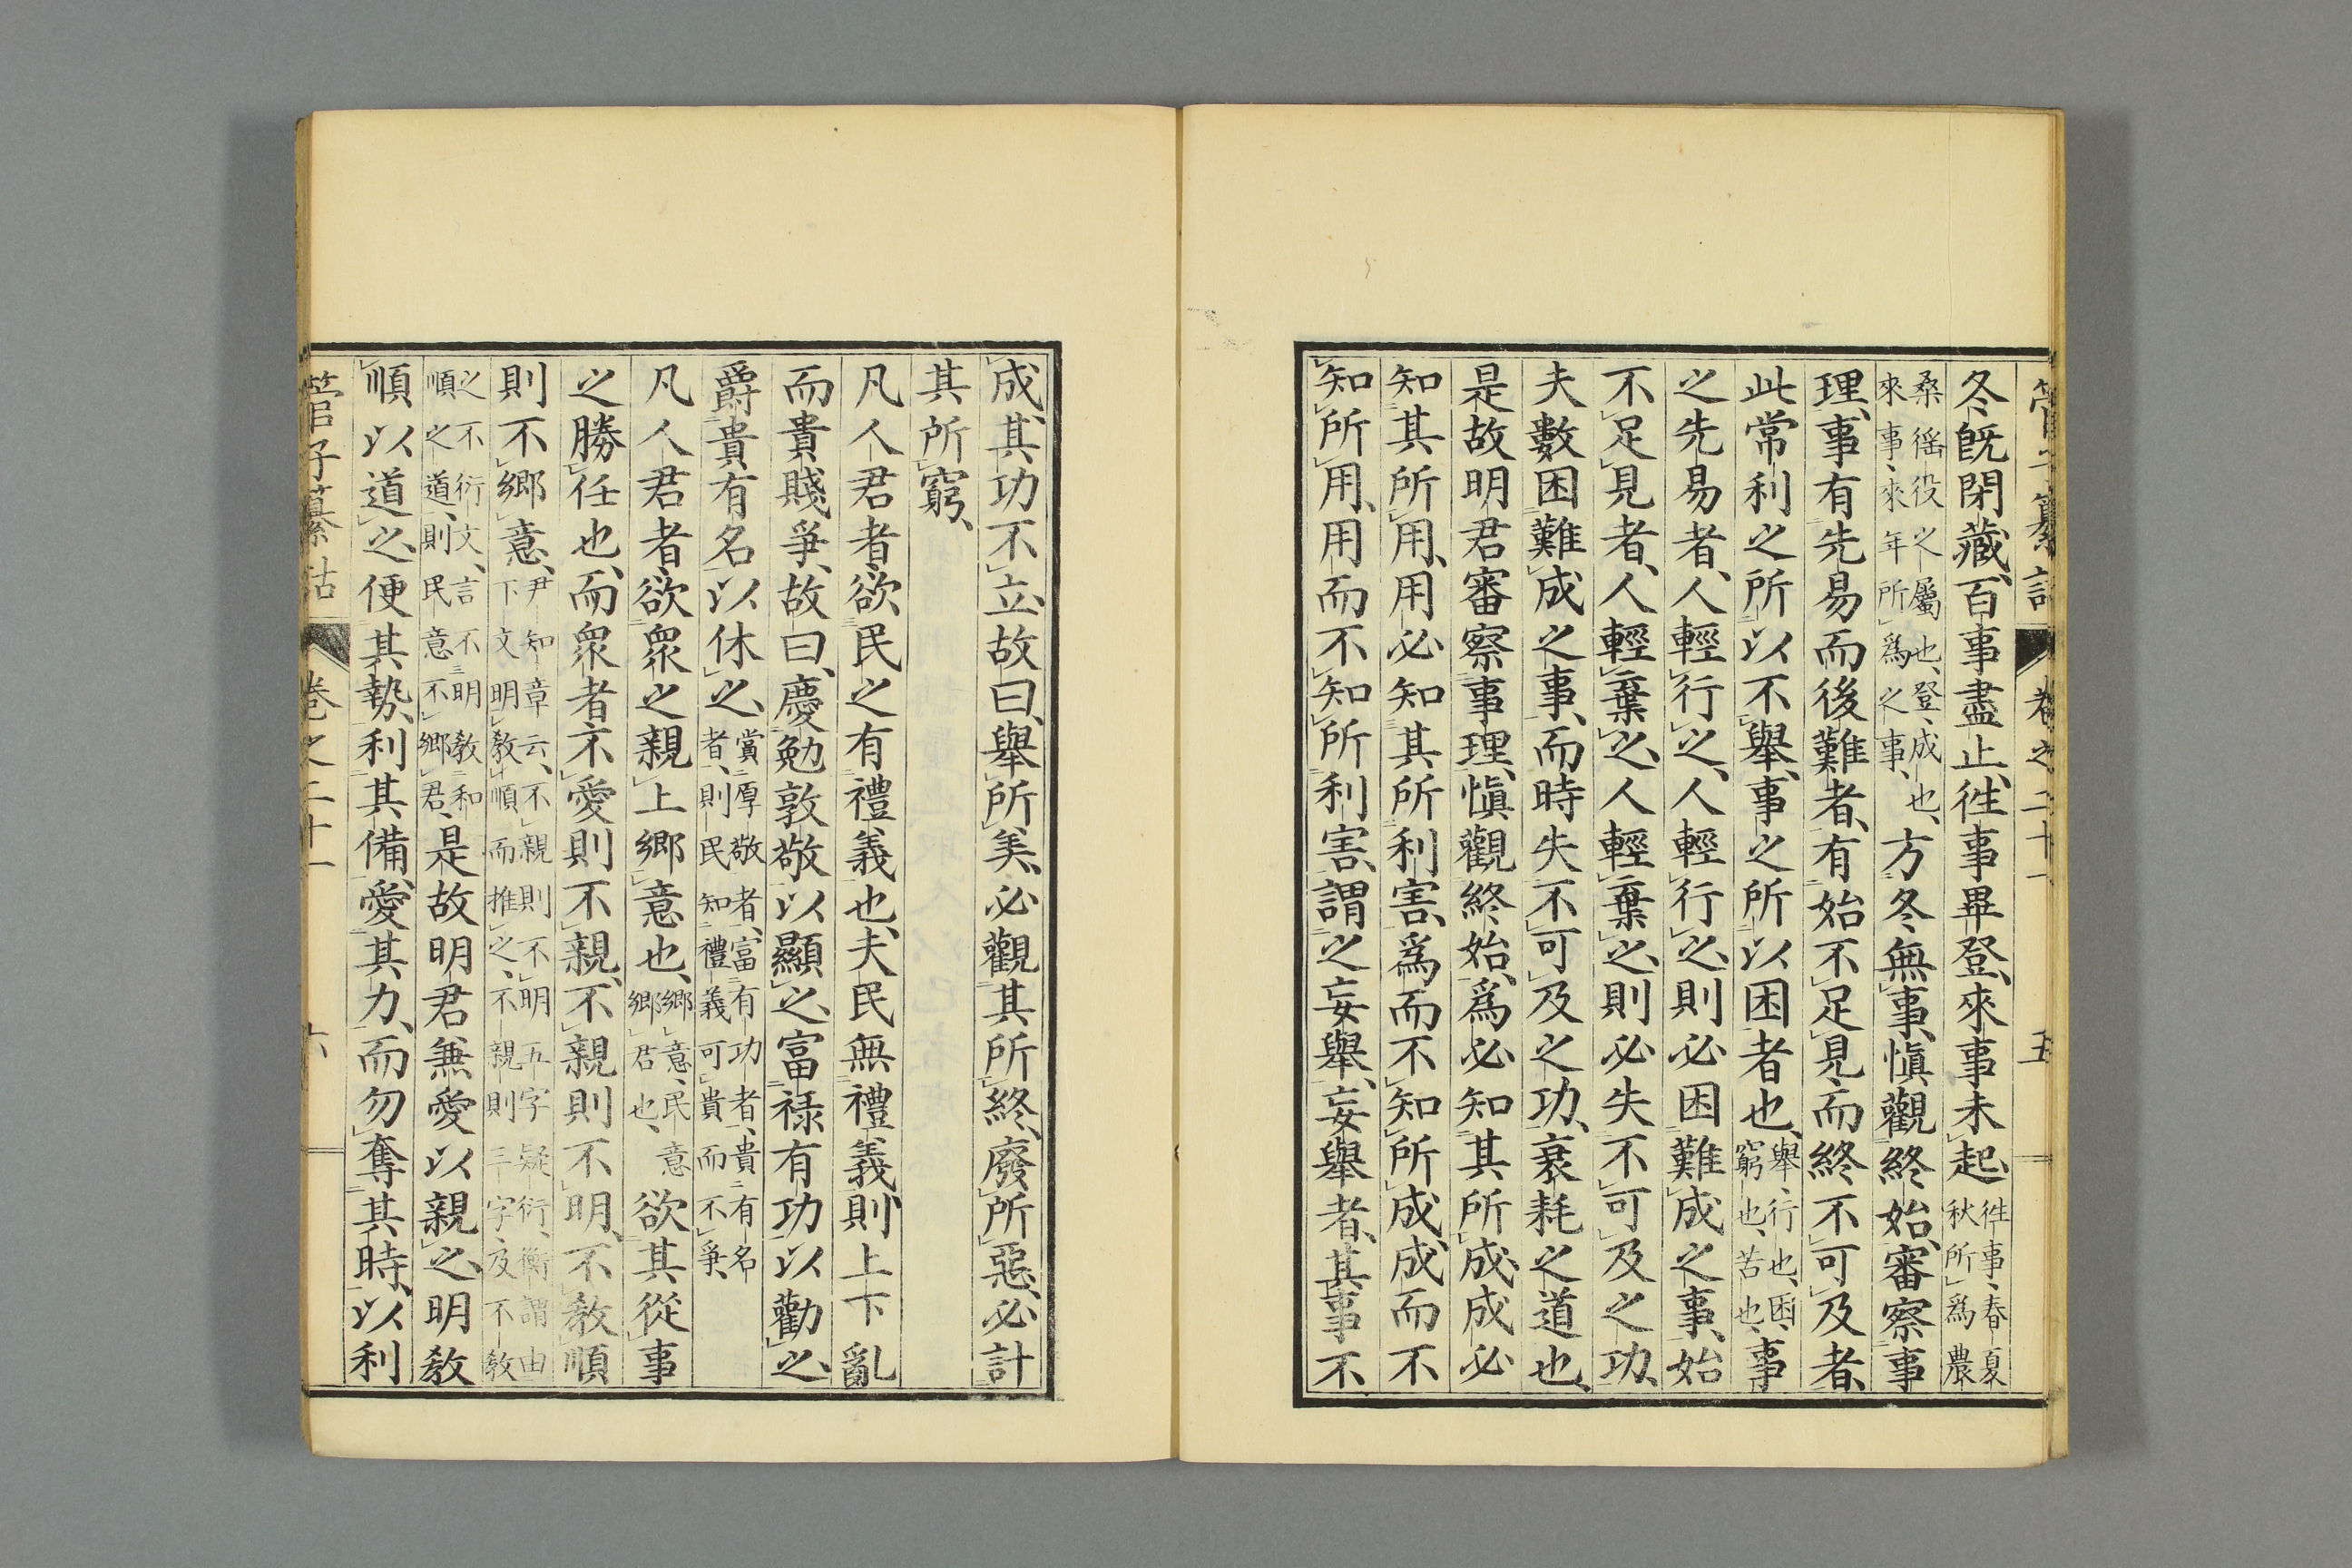 管子纂詁 卷之二十一 五
冬既閉藏、百事盡止、徃事畢登、來事未起、徃事、春夏秋所爲農
桑徭役之屬也、登、成也、來事、來年所爲之事、方冬無事、愼觀終始、審察事
理、事有先易而後難者、有始不足見、而終不可及者、
此常利之所以不舉、事之所以困者也、舉、行也、困、窮也、苦也、事
之先易者、人輕行之、人輕行之、則必困難成之事、始
不足見者、人輕棄之、人輕棄之、則必失不可及之功、
夫數困難成之事、而時失不可及之功、衰耗之道也、
是故明君審察事理、愼觀終始、爲必知其所成、成必
知其所用、用必知其所利害、爲而不知所成、成而不
知所用、用而不知所利害、謂之妄舉、妄舉者、其事不
成、其功不立、故曰、舉所美、必觀其所終、廢所惡、必計
其所窮、
凡人君者、欲民之有禮義也、夫民無禮義、則上下亂
而貴賤爭、故曰、慶勉敦敬以顯之、富祿有功以勸之、
爵貴有名以休之、賞厚敬者、富有功者、貴有名者、則民知禮義可貴而不爭、
凡人君者、欲衆之親上鄉意也、鄉意、民意鄉君也、欲其從事
之勝任也、而衆者不愛則不親、不親則不明、不教順
則不鄉意、尹知章云、不親則不明五字疑衍、衡謂由下文明教順而推之、不親則三字、及不教
之不衍文、言不明教和順之道、則民意不鄉君、是故明君兼愛以親之、明教
順以道之、便其勢、利其備、愛其力、而勿奪其時、以利
管子纂詁 卷之二十一 六